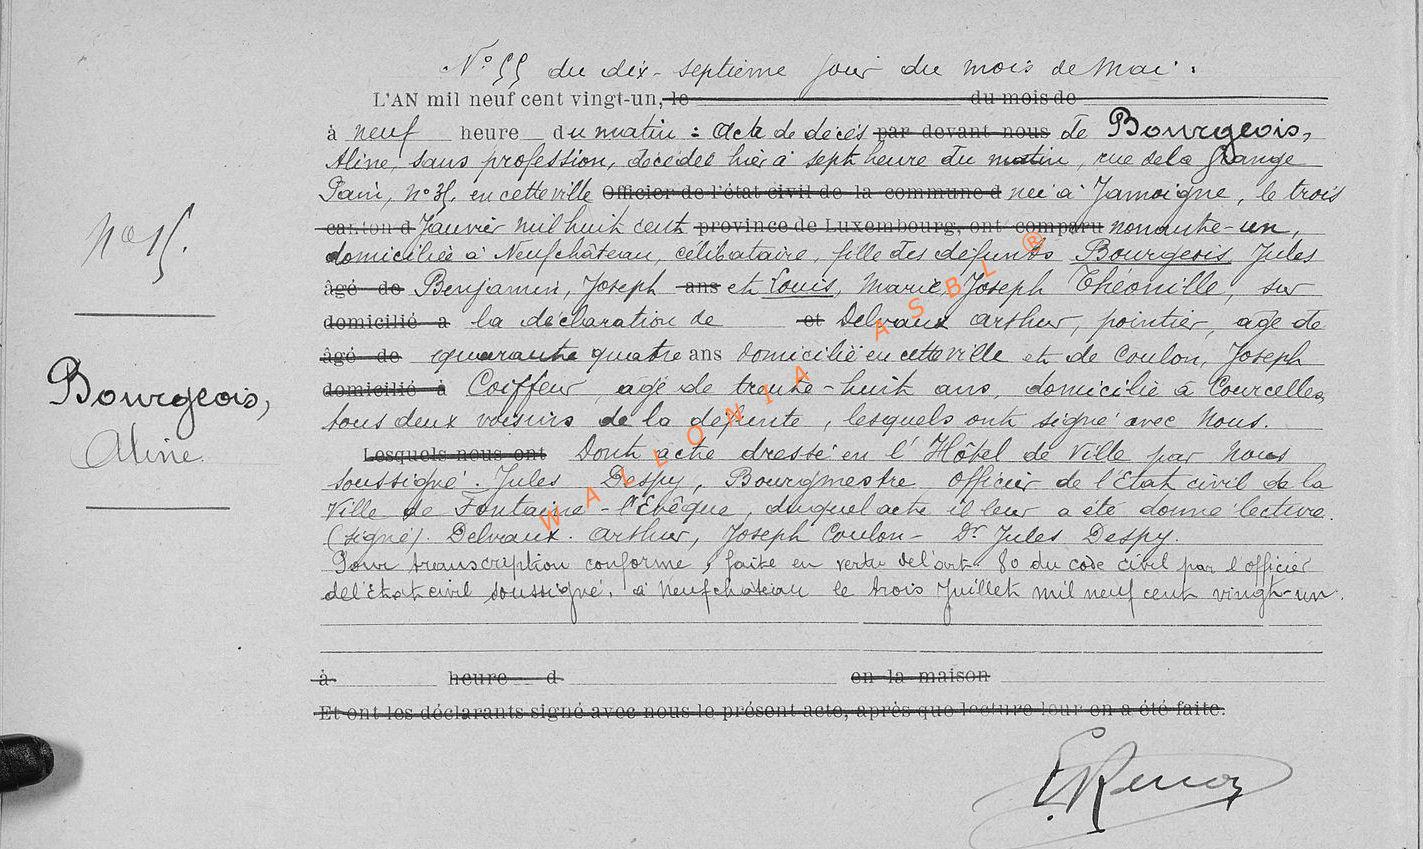 N° 55 du dix-septième jour du mois de Mai.
L'AN mil neuf cent vingt-un, le du mois de
à neuf heure du matin : Acte de décès par devant nous de Bourgeois,
Aline, sans profession, décédée hier à sept heure du matin, rue de la grange
n° 35, en cette ville Officier de l'état civil de la commune d née à Jamoigne, le trois
canton d Janvier mil huit cent province de Luxembourg, ont comparu nonante-un,
domiciliée à Neufchâteau, célibataire, fille des défunts Bourgeois Jules
âgé de Benjamin, Joseph ans et Louis, Marie, Joseph Théonille, sur
domicilié à la déclaration de et Delvaux Arthur, pointier, âgé de
âgé de quarante quatre ans domicilié en cette ville et de Coulon, Joseph
domicilié à Coiffeur âgé de trente-huit ans, domicilié à Courcelles,
tous deux voisins de la défunte, lesquels ont signé avec Nous.
Lesquels nous ont Dont acte dressé en l'Hôtel de Ville par Nous
soussigné. Jules Despy, Bourgmestre Officier de l'Etat civil de la
Ville de Fontaine-l'Evêque, duquel acte il leur a été donné lecture.
(signé). Delvaux. Arthur, Joseph Coulon - Dr Jules Despy.
Pour transcription conforme, faite en vertu de l'art. 80 du code civil par l'officier
de l'Etat civil soussigné, à Neufchâteau le trois Juillet mil neuf cent vingt-un.
à heure d en la maison
Et ont les déclarants signé avec nous le présent acte, après que lecture leur en a été faite.
N° 15.
Bourgeois,
Aline.
WALLONIA ASBL ®